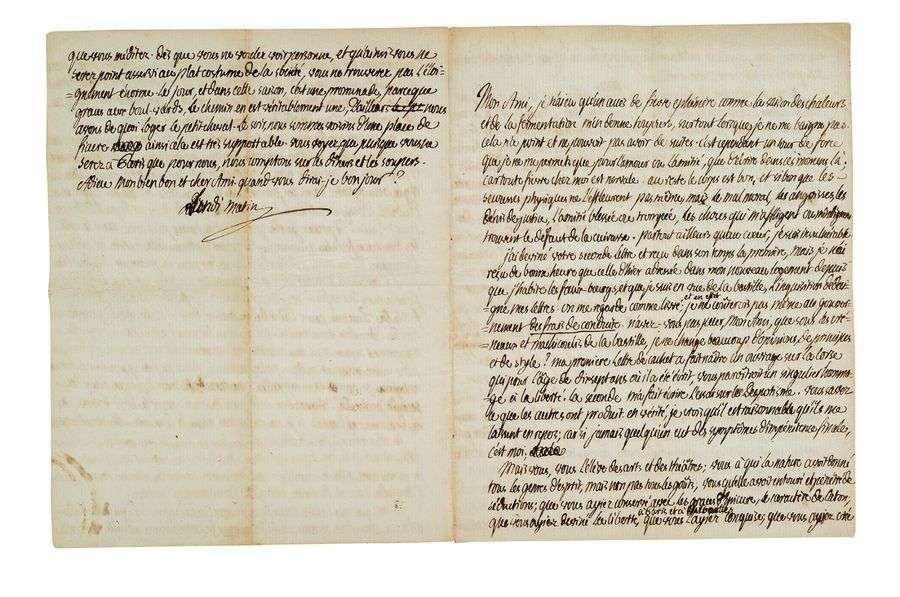 que vous méditez. dès que vous ne voulez voir personne, et qu'ainsi vous ne
serez point asservi au plat costume de la société, vous ne trouverez pas l'éloi-
=gnement énorme. le jour, et dans cette saison, c'est une promenade, parceque
graces aux boulevards, le chemin en est véritablement une, d'ailleurs nous
avons de quoi loger le petit cheval. le soir, nous sommes voisins d'une place de
fiacre ainsi cela est très supportable. vous voyez que, puisque vous ne
serez à Paris que pour nous, nous comptons sur les dîners et les soupers.
Adieu mon bien bon et cher Ami. quand vous dirai-je bonjour?
Lundi matin
Mon Ami, je n'ai eu qu'un accès de fievre éphémère comme la saison des chaleurs
et de la fermentation m'en donne toujours, surtout lorsque je ne me baigne pas.
cela n'a point et ne pouvoit pas avoir de suites. c'est cependant un tour de force
que je ne me permets que pour l'amour ou l'amitié, que d'écrire dans ces momens là.
car toute fievre chez moi est nervale. au reste le corps est bon, et si bon que les
secousses physiques ne l'effleurent pas même, mais le mal moral, les angoisses, les
dénis de justice, l'amitié blessée ou trompée, les choses qui m'affligent ou m'indignent
trouvent le défaut de la cuirasse. partout ailleurs qu'au cœur, je suis invulnérable.
j'ai deviné votre seconde lettre et reçu dans son temps la première, mais je n'ai
reçu de bonne heure que celle d'hier adressée dans mon nouveau logement. depuis
que j'habite les faux-bourgs et que je suis en vue de la bastille, l'inquisition dédai-
=gne mes lettres. on me regarde comme lassé; et en effet je ne coûterois pas même au gouver-
=nement des frais de conduite. n'avez-vous pas peur, Mon Ami, que sous les cré-
=neaux et machicoulis de la bastille, je ne change beaucoup d'opinions, de principes
et de style? ma première lettre de cachet a fait naître un ouvrage sur la Corse
qui pour l'âge de dix sept ans où il a été écrit, vous paroîtroit un singulier homma-
=ge à la liberté. la seconde m'a fait écrire l'essai sur le Despotisme. vous savez
ce que les autres ont produit. en vérité, je crois qu'il est raisonnable qu'ils me
laissent en repos; car si jamais quelqu'un eut des symptômes d'impénitence finale,
c'est moi.
Mais vous, vous l'élève des arts et des théâtres; vous à qui la nature avoit donné
tous les genres d'esprit, mais non pas tous les goûts, vous qu'elle avoit entouré et pénétré de
séductions; que vous ayiez conservé avec les graces d'Epicure, le caractère de Caton;
que vous ayiez deviné la liberté, que vous l'ayiez conquise à Paris et à; que vous ayiez